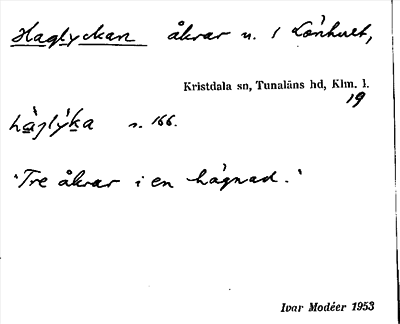 Haglyckan åkrar n. 1 Lönhult,
Kristdala sn, Tunaläns hd, Klm. l.
19
s. 166.
"Tre åkrar i en hägnad."
Ivar Modéer 1953